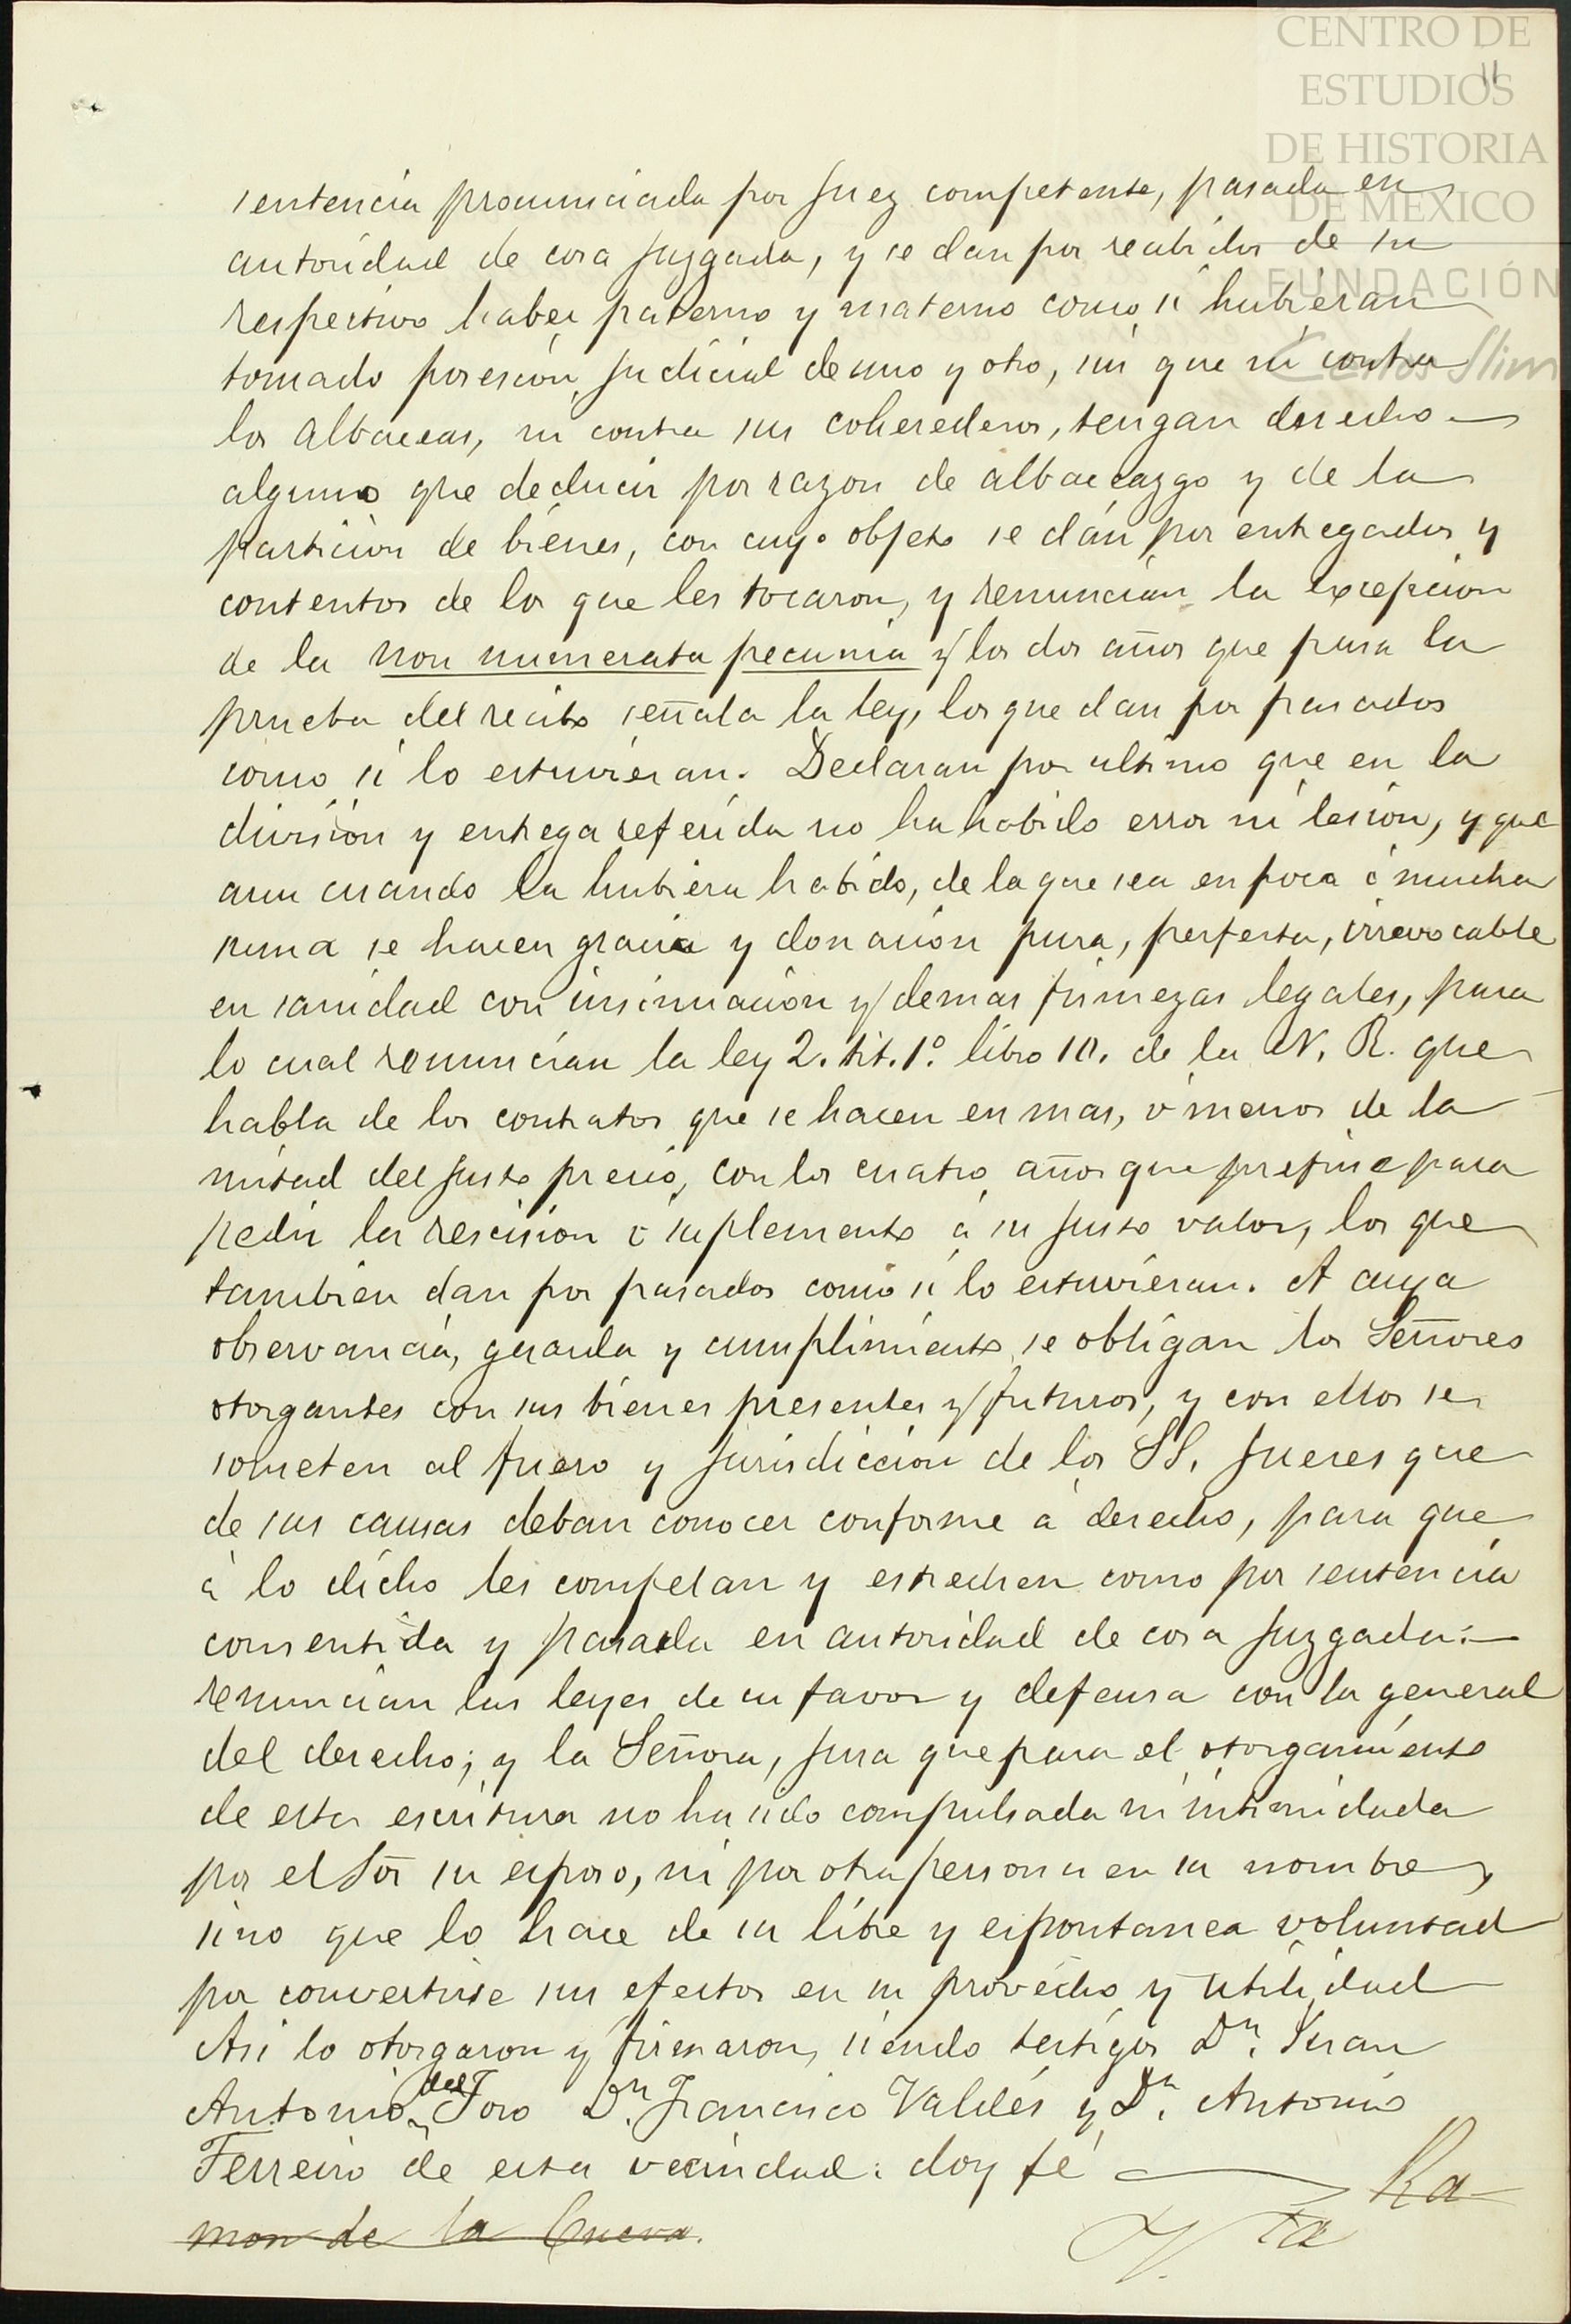 CENTRO DE
ESTUDIOS
DE HISTORIA
DE MEXICO
FUNDACIÓN
Carlos Slim
11
sentencia pronunciada por Juez competente, pasada en
autoridad de cosa juzgada, y se dan por recibidos de su
respectivo haber paterno y materno como si hubieran
tomado posesion judicial de uno y otro, sin que ni contra
los albaceas, ni contra sus coherederos, tengan derecho
alguno que deducir por razon de albaceazgo y de la
particion de bienes, con cuyo objeto se dán por entregados y
contentos de los que les tocaron, y renuncian la excepcion
de la non numerata pecunia y los dos años que para la
prueba del recibo señala la ley, los que dan por pasados
como si lo estuvieran. Declaran por ultimo que en la
division y entrega referida no ha habido error ni lesion, y que
aun cuando la hubiera habido, de la que sea en poca ó mucha
suma se hacen gracia y donacion pura, perfecta, irrevocable
en sanidad con insinuacion y demas firmezas legales, para
lo cual renuncian la ley 2. tit. 1º. libro 10. de la N. R. que
habla de los contratos que se hacen en mas, ó menos de la
mitad del justo precio, con los cuatro años que prefine para
pedir la rescision ó suplemento á su justo valor, los que
tambien dan por pasados como si lo estuvieran. A cuya
observancia, guarda y cumplimiento se obligan los Señores
otorgantes con sus bienes presentes y futuros, y con ellos se
someten al fuero y jurisdiccion de los SS. Jueces que
de sus causas deban conocer conforme á derecho, para que
á lo dicho les compelan y estrechen como por sentencia
consentida y pasada en autoridad de cosa juzgada:
renuncian las leyes de su favor y defensa con la general
del derecho; y la Señora, jura que para el otorgamiento
de esta escritura no ha sido compulsada ni intimidada
por el Sõr su esposo, ni por otra persona en su nombre,
sino que lo hace de su libre y espontanea voluntad
por convertirse sus efectos en su provecho y utilidad
Asi lo otorgaron y firmaron, siendo testigos Dn. Juan
Antonio del Toro Dn. Francisco Valdés y Dn. Antonio
Ferreiro de esta vecindad: doy fé Ra
mon de la Cueva.
V. ta